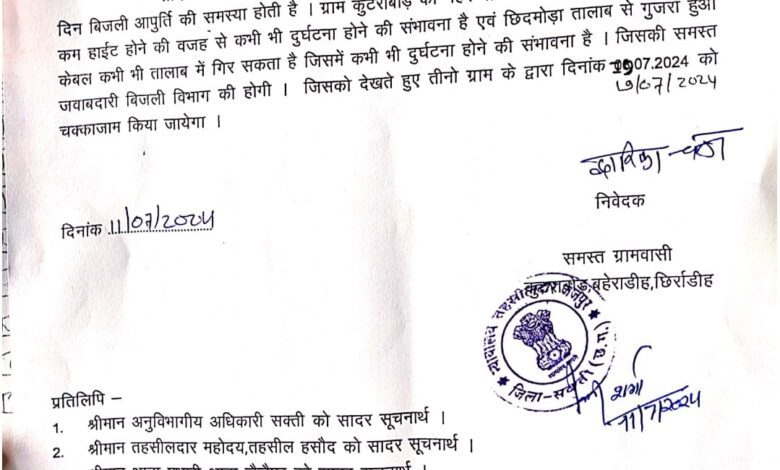 दिन बिजली आपुर्ति की समस्या होती है । ग्राम कुटराबोड़
कम हाईट होने की वजह से कभी भी दुर्घटना होने की संभावना है एवं छिदमोड़ा तालाब से गुजरा हुआ
केबल कभी भी तालाब में गिर सकता है जिसमें कभी भी दुर्घटना होने की संभावना है । जिसकी समस्त
जवाबदारी बिजली विभाग की होगी । जिसको देखते हुए तीनो ग्राम के द्वारा दिनांक 19.07.2024 को
19/07/2024
चक्काजाम किया जायेगा ।
निवेदक
दिनांक 11/07/2024
समस्त ग्रामवासी
बहेराडीह,छिर्राडीह
न्यायालय तहसीलदार
जिला-सक्ती (छ.ग.)
शर्मा
11/7/2024
प्रतिलिपि –
1. श्रीमान अनुविभागीय अधिकारी सक्ती को सादर सूचनार्थ ।
2. श्रीमान तहसीलदार महोदय,तहसील हसौद को सादर सूचनार्थ ।